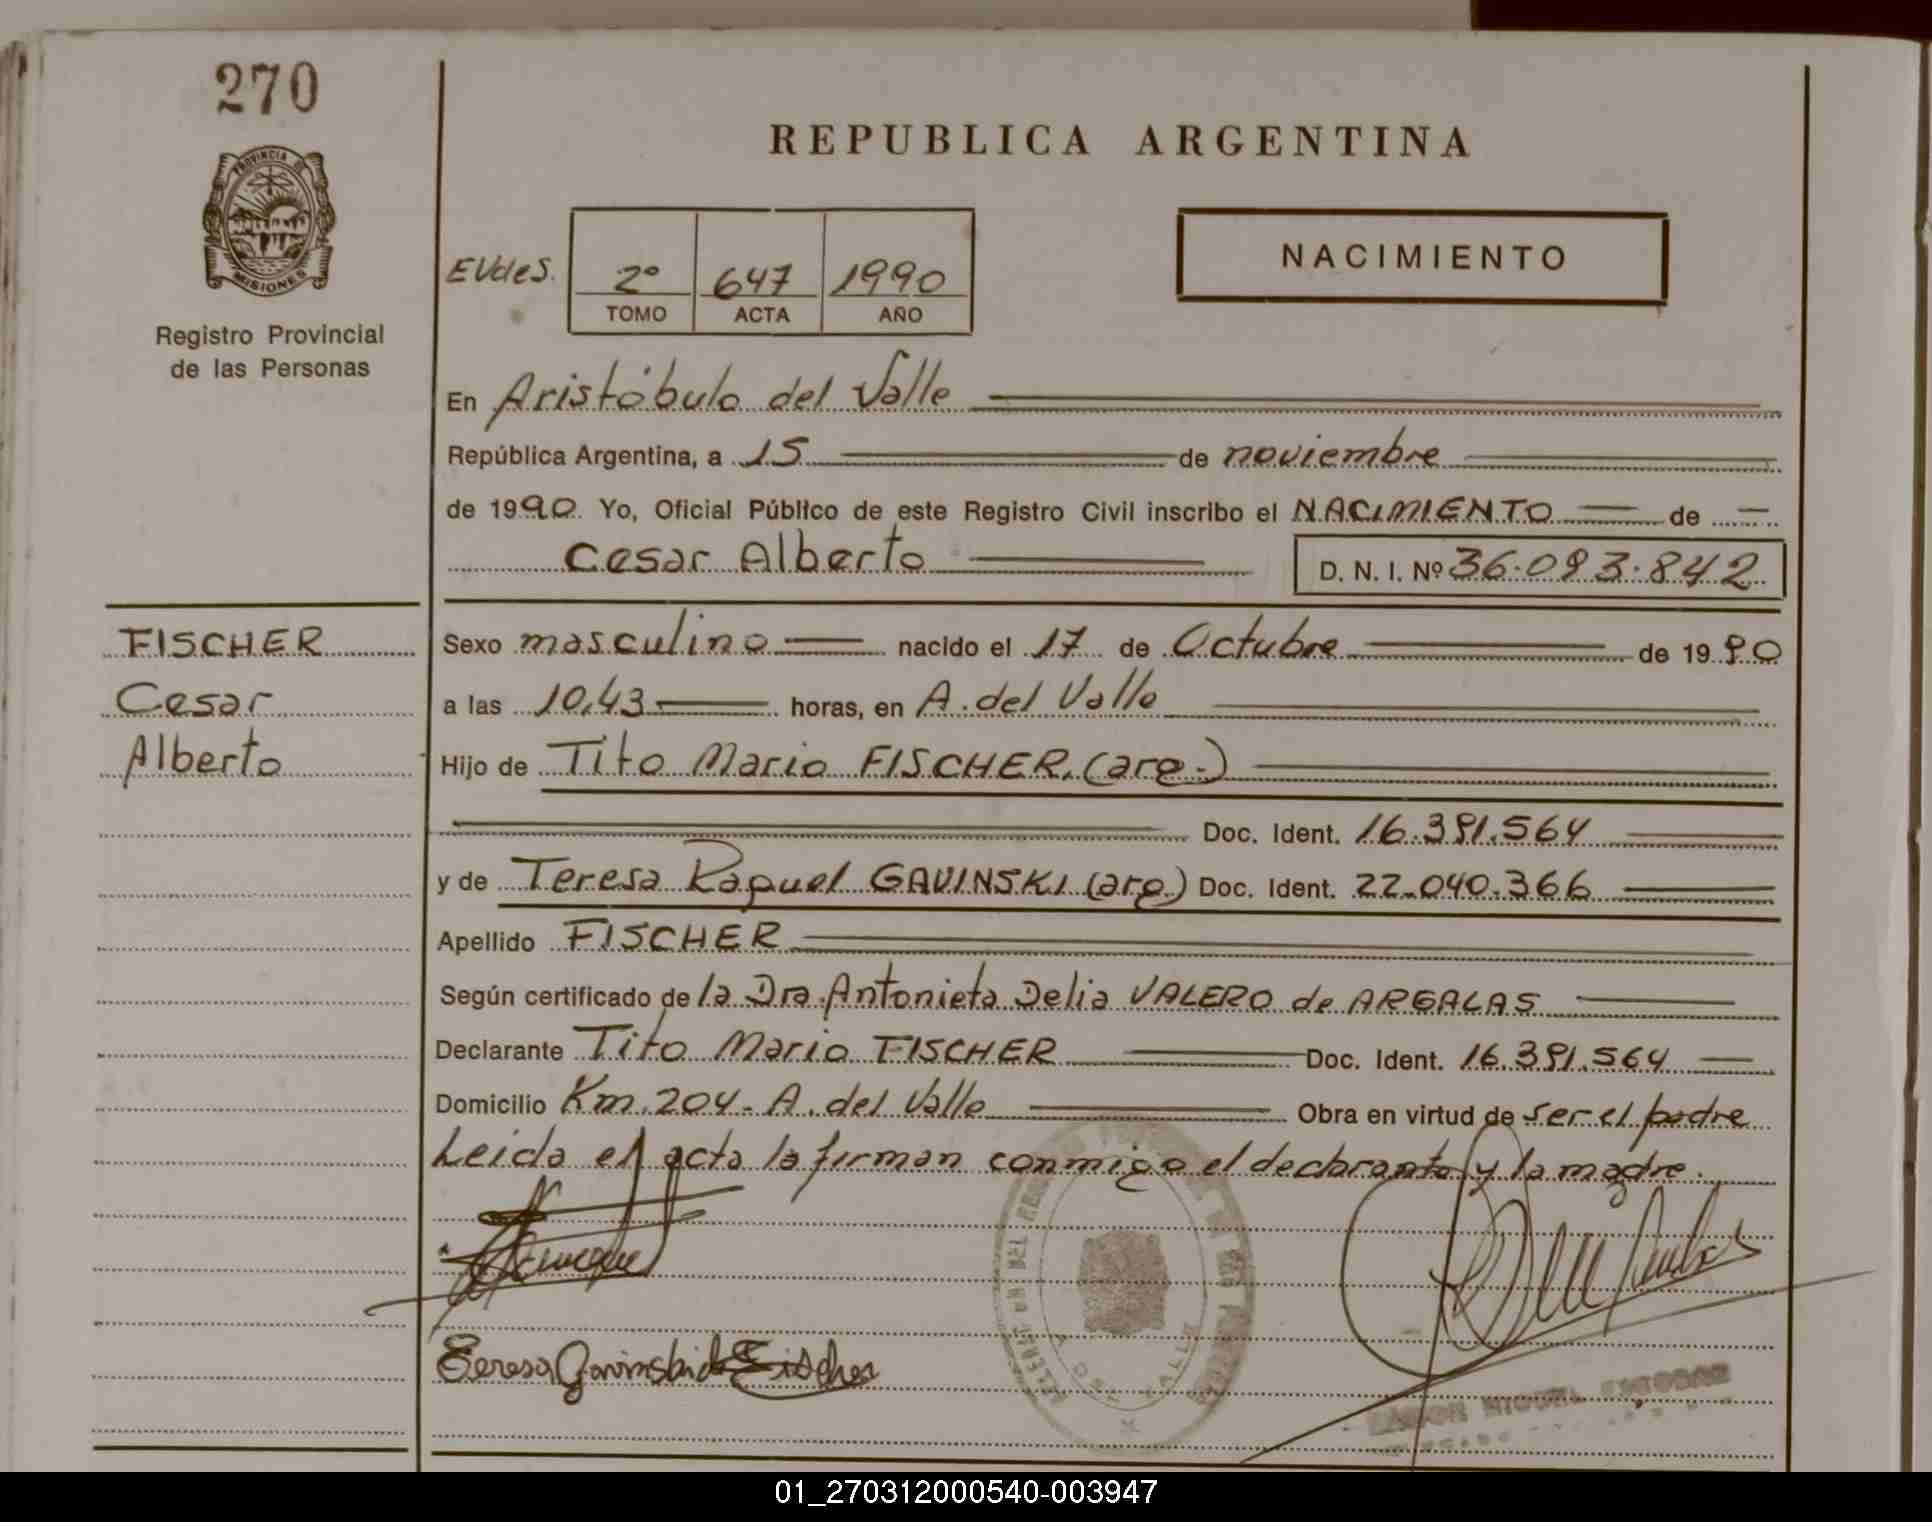 270
REPUBLICA ARGENTINA
PROVINCIA DE
MISIONES
Registro Provincial
de las Personas
NACIMIENTO
2º 647 1990
TOMO ACTA AÑO
En Aristóbulo del Valle
República Argentina, a 15 de noviembre
de 1990 Yo, Oficial Público de este Registro Civil inscribo el NACIMIENTO de
Cesar Alberto D. N. I. Nº 36.093.842
FISCHER
Cesar
Alberto
Sexo masculino nacido el 17 de Octubre de 1990
a las 10,43 horas, en A. del Valle
Hijo de Tito Mario FISCHER. (arg.)
Doc. Ident. 16.391.564
y de Teresa Raquel GAVINSKI (arg.) Doc. Ident. 22.040.366
Apellido FISCHER
Según certificado de la Dra. Antonieta Delia VALERO de ARGALAS
Declarante Tito Mario FISCHER Doc. Ident. 16.391.564
Domicilio Km. 204 - A. del Valle Obra en virtud de ser el padre
Leida el acta la firman conmigo el declarante y la madre.
Teresa Gavinski de Fischer
01_270312000540-003947